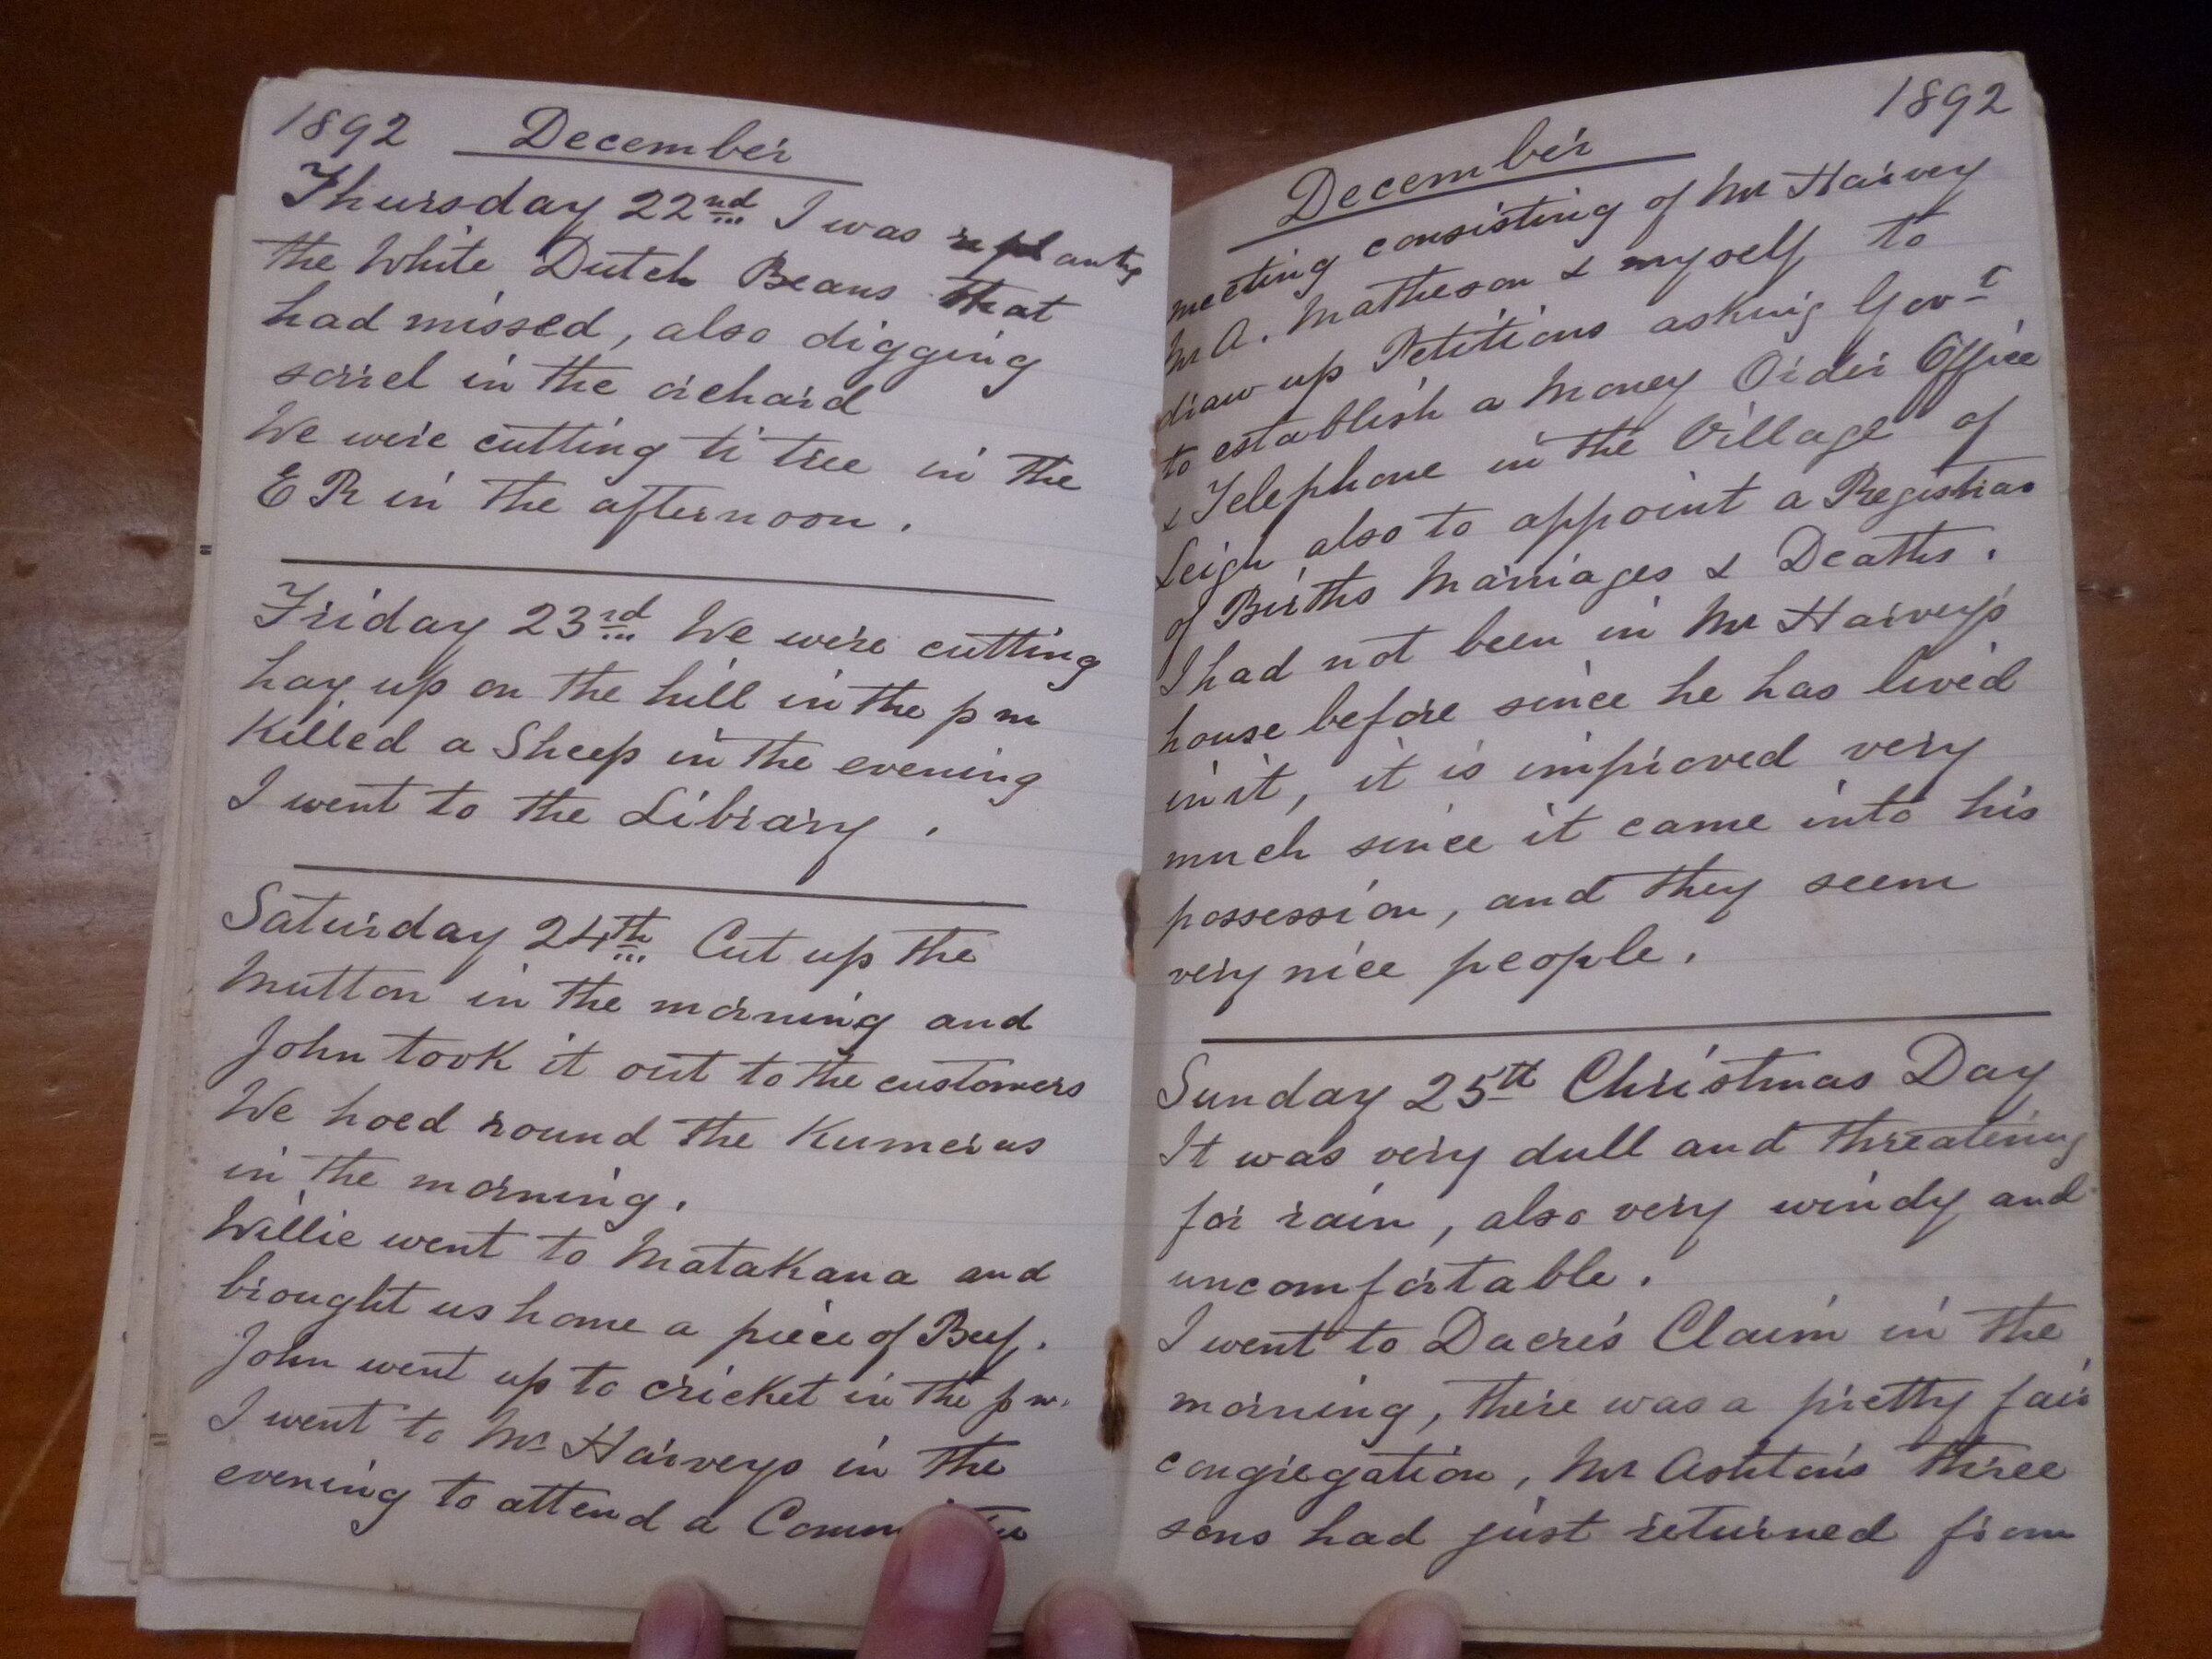 1892 December
Thursday 22nd I was replanting
the White Dutch Beans that
had missed, also digging
sorrel in the orchard
We were cutting ti tree in the
E R in the afternoon.
Friday 23rd We were cutting
hay up on the hill in the p m
Killed a Sheep in the evening
I went to the Library.
Saturday 24th Cut up the
Mutton in the morning and
John took it out to the customers
We hoed round the Kumeras
in the morning.
Willie went to Matakana and
brought us home a piece of Beef.
John went up to cricket in the p m.
I went to Mr Harveys in the
evening to attend a
December 1892
meeting consisting of Mr Harvey
Mr A. Matheson & myself to
draw up Petitions asking Govt
to establish a Money Order Office
& Telephone in the Village of
Leigh also to appoint a Registrar
of Births Marriages & Deaths.
I had not been in Mr Harvey's
house before since he has lived
in it, it is improved very
much since it came into his
possession, and they seem
very nice people.
Sunday 25th Christmas Day
It was very dull and threatening
for rain, also very windy and
uncomfortable.
I went to Dacre's Claim in the
morning, there was a pretty fair
congregation, Mr Ashton's three
sons had just returned from